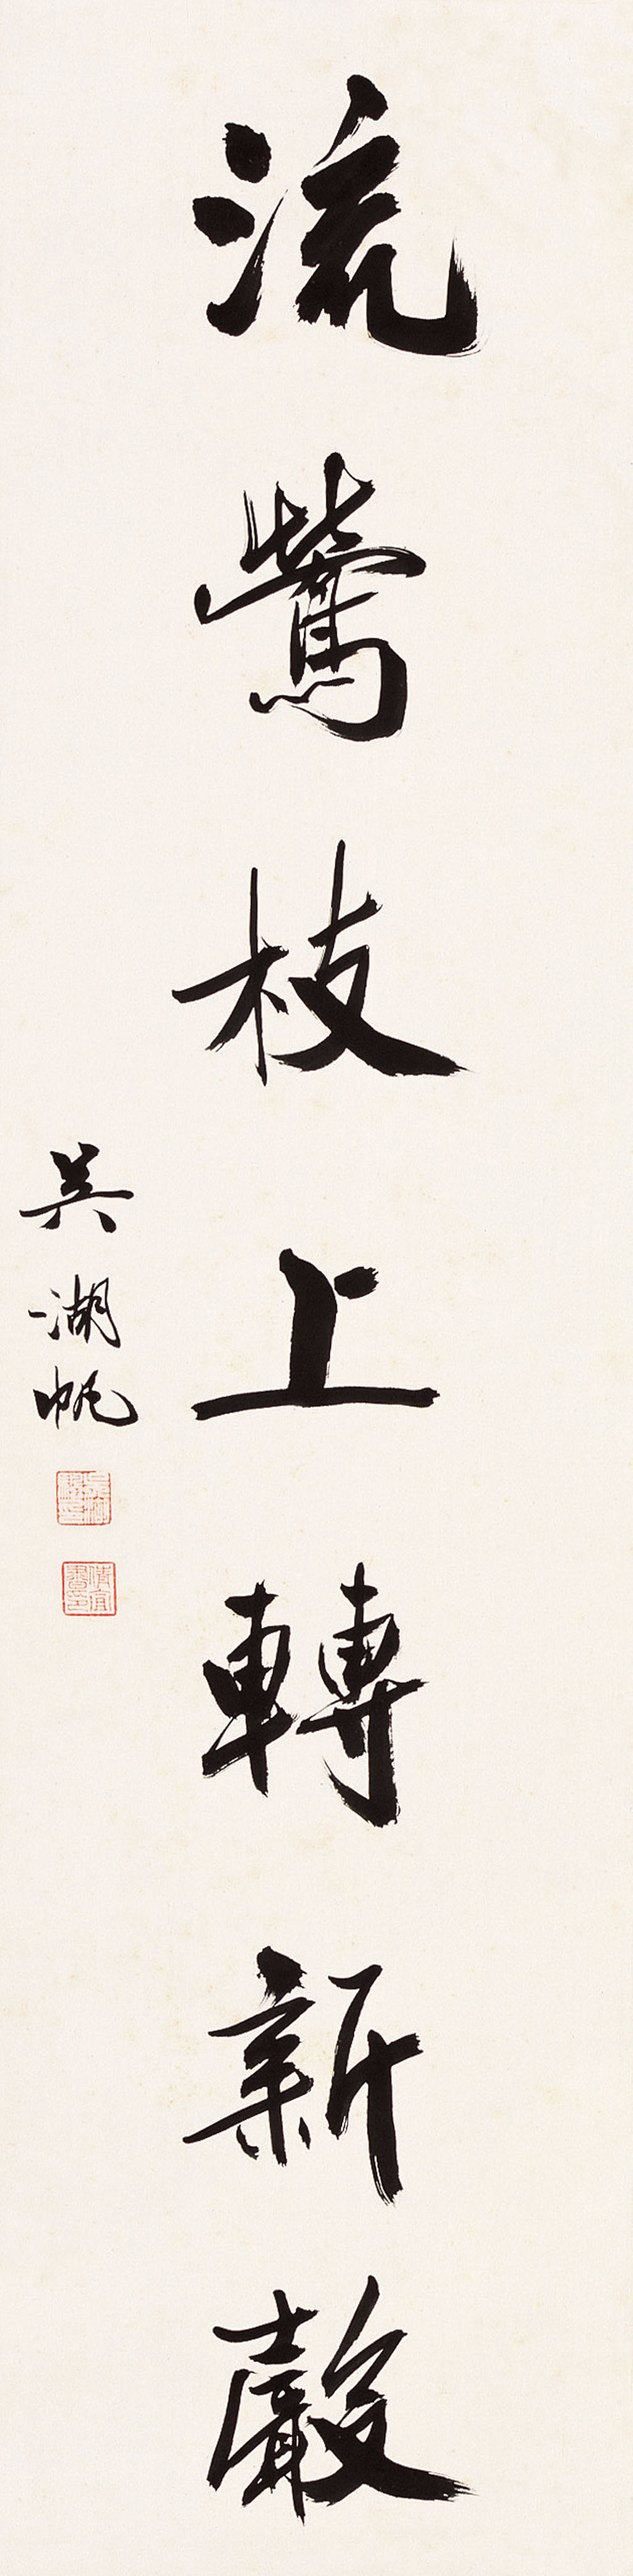 流鶯枝上轉新聲
吳湖帆